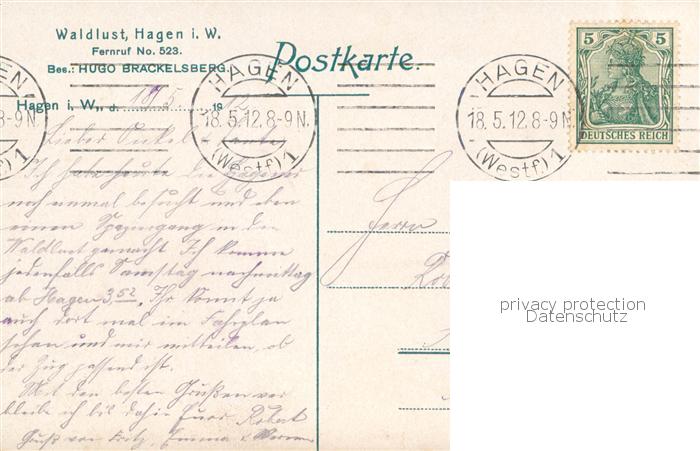 Waldlust, Hagen i. W.
Fernruf No. 523.
Bes.: HUGO BRACKELSBERG.
Postkarte.
Hagen i. W., d. 19
HAGEN
18.5.12.8-9N.
(Westf.) 1
HAGEN
18.5.12.8-9N.
(Westf.) 1
5 5
DEUTSCHES REICH
8-9N.
1
Lieber Onkel
Ich habe heute
noch einmal besucht und den
einen Spaziergang in den
Waldlust gemacht Ich komme
jedenfalls Samstag nachmittag
ab Hagen 3.52. Ihr könnt ja
auch dort mal im Fahrplan
sehen und mir mitteilen, ob
der Zug passend ist.
Mit den besten Grüßen ver
bleibe ich bis dahin Euer Robert
Gruß von Fritz, Emma
Herrn
privacy protection
Datenschutz